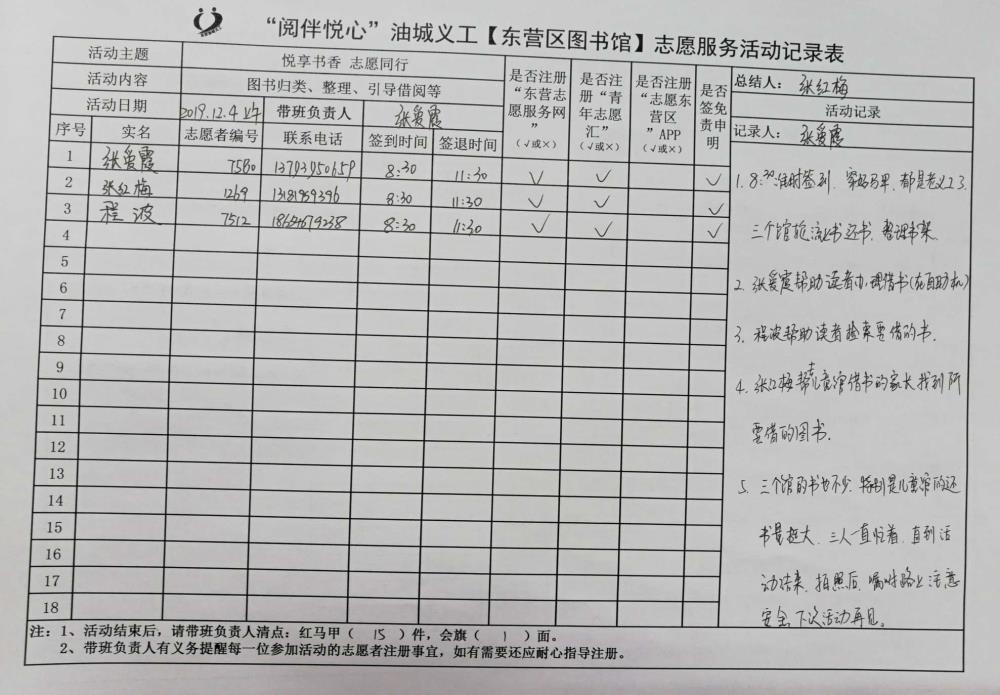 “阅伴悦心”油城义工【东营区图书馆】志愿服务活动记录表
活动主题 悦享书香 志愿同行
活动内容 图书归类、整理、引导借阅等
活动日期 2019.12.4 上午 带班负责人 张爱霞
序号 实名 志愿者编号 联系电话 签到时间 签退时间 是否注册“东营志愿服务网”（√或×） 是否注册“青年志愿汇”（√或×） 是否注册“志愿东营区”APP（√或×） 是否签免责申明
1 张爱霞 7580 13793950659 8:30 11:30 √ √ √
2 张红梅 1269 13181959396 8:30 11:30 √ √ √
3 程波 7512 18654679238 8:30 11:30 √ √ √
4
5
6
7
8
9
10
11
12
13
14
15
16
17
18
总结人：张红梅
活动记录
记录人：张爱霞
1. 8:30准时签到，穿好马甲，都是老义工了。
三个馆 书还书，整理书架.
2. 张爱霞帮助读者办理借书（在自助机）
3. 程波帮助读者检索要借的书.
4. 张红梅帮去儿童馆借书的家长找到所
要借的图书.
5. 三个馆的书也不少，特别是儿童馆的还
书量挺大，三人一直忙着，直到活
动结束，拍照后，嘱咐路上注意
安全，下次活动再见。
注：1、活动结束后，请带班负责人清点：红马甲（ 15 ）件，会旗（ 1 ）面。
2、带班负责人有义务提醒每一位参加活动的志愿者注册事宜，如有需要还应耐心指导注册。